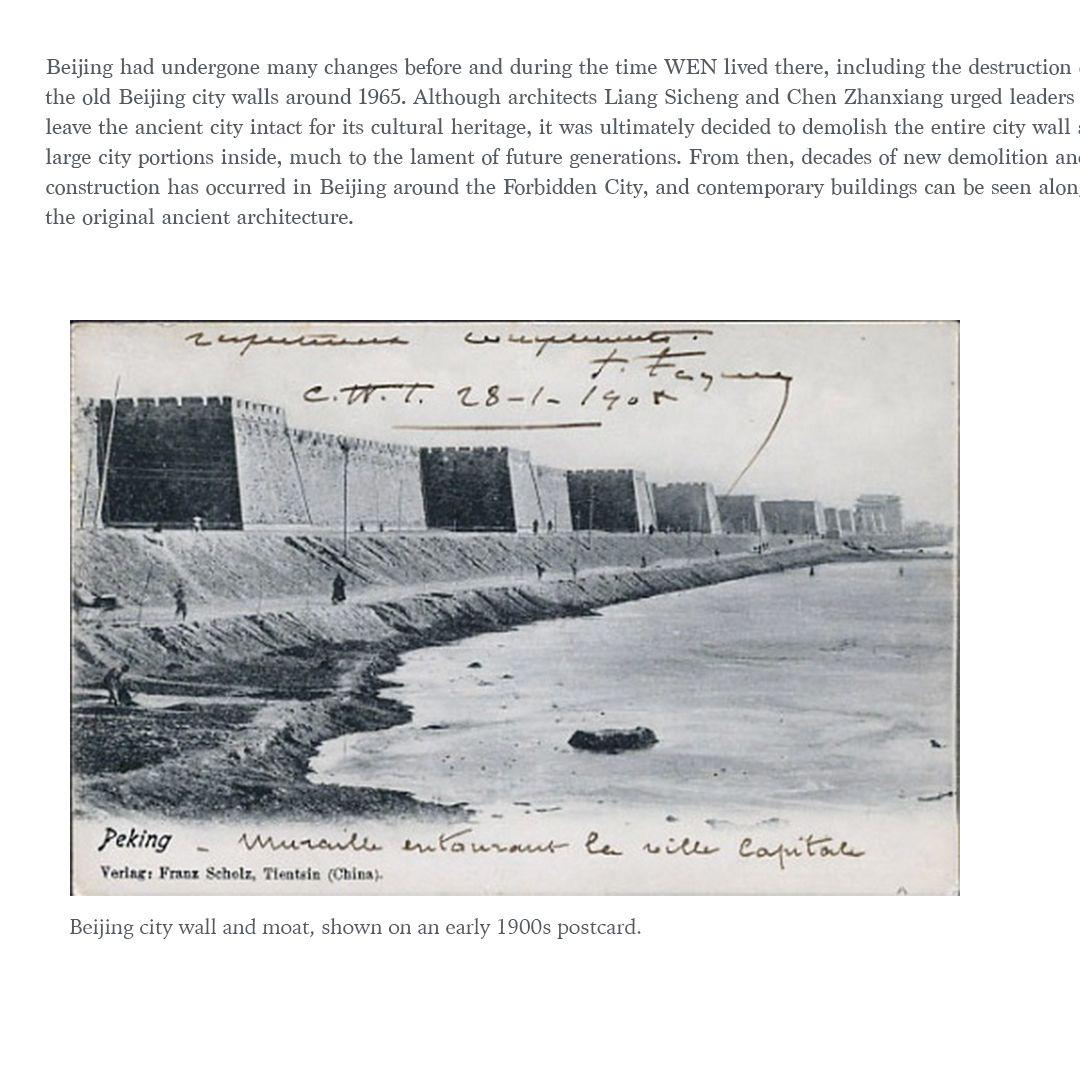 Beijing had undergone many changes before and during the time WEN lived there, including the destruction
the old Beijing city walls around 1965. Although architects Liang Sicheng and Chen Zhanxiang urged leaders
leave the ancient city intact for its cultural heritage, it was ultimately decided to demolish the entire city wall
large city portions inside, much to the lament of future generations. From then, decades of new demolition an
construction has occurred in Beijing around the Forbidden City, and contemporary buildings can be seen alon
the original ancient architecture.
28-1-190
Peking - Muraille entourant la ville Capitale
Verlag: Franz Scholz, Tientsin (China).
Beijing city wall and moat, shown on an early 1900s postcard.